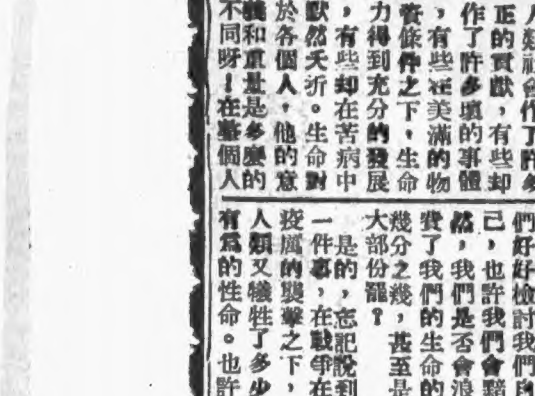 人類社會作了許多
正的貢獻，有些却
作了許多壞的事體
，有些在美滿的物
質條件之下，生命
力得到充分的發展
，有些却在苦病中
默然夭折。生命對
於各個人，他的意
義和重量是多麼的
不同呀！在整個人
們好好檢討我們自
己，也許我們會黯
然，我們是否會浪
費了我們的生命的
幾分之幾，甚至是
大部份罷？
是的，忘記說到
一件事，在戰爭在
疫厲的襲擊之下，
人類又犧牲了多少
有爲的性命。也許